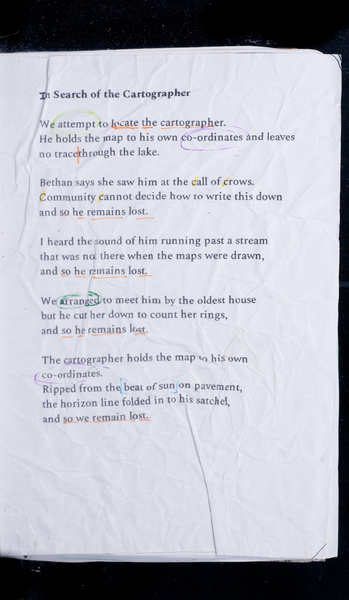 In Search of the Cartographer
We attempt to locate the cartographer.
He holds the map to his own co-ordinates and leaves
no trace through the lake.
Bethan says she saw him at the call of crows.
Community cannot decide how to write this down
and so he remains lost.
I heard the sound of him running past a stream
that was not there when the maps were drawn,
and so he remains lost.
We arranged to meet him by the oldest house
but he cut her down to count her rings,
and so he remains lost.
The cartographer holds the map to his own
co-ordinates.
Ripped from the beat of sun on pavement,
the horizon line folded in to his satchel,
and so we remain lost.